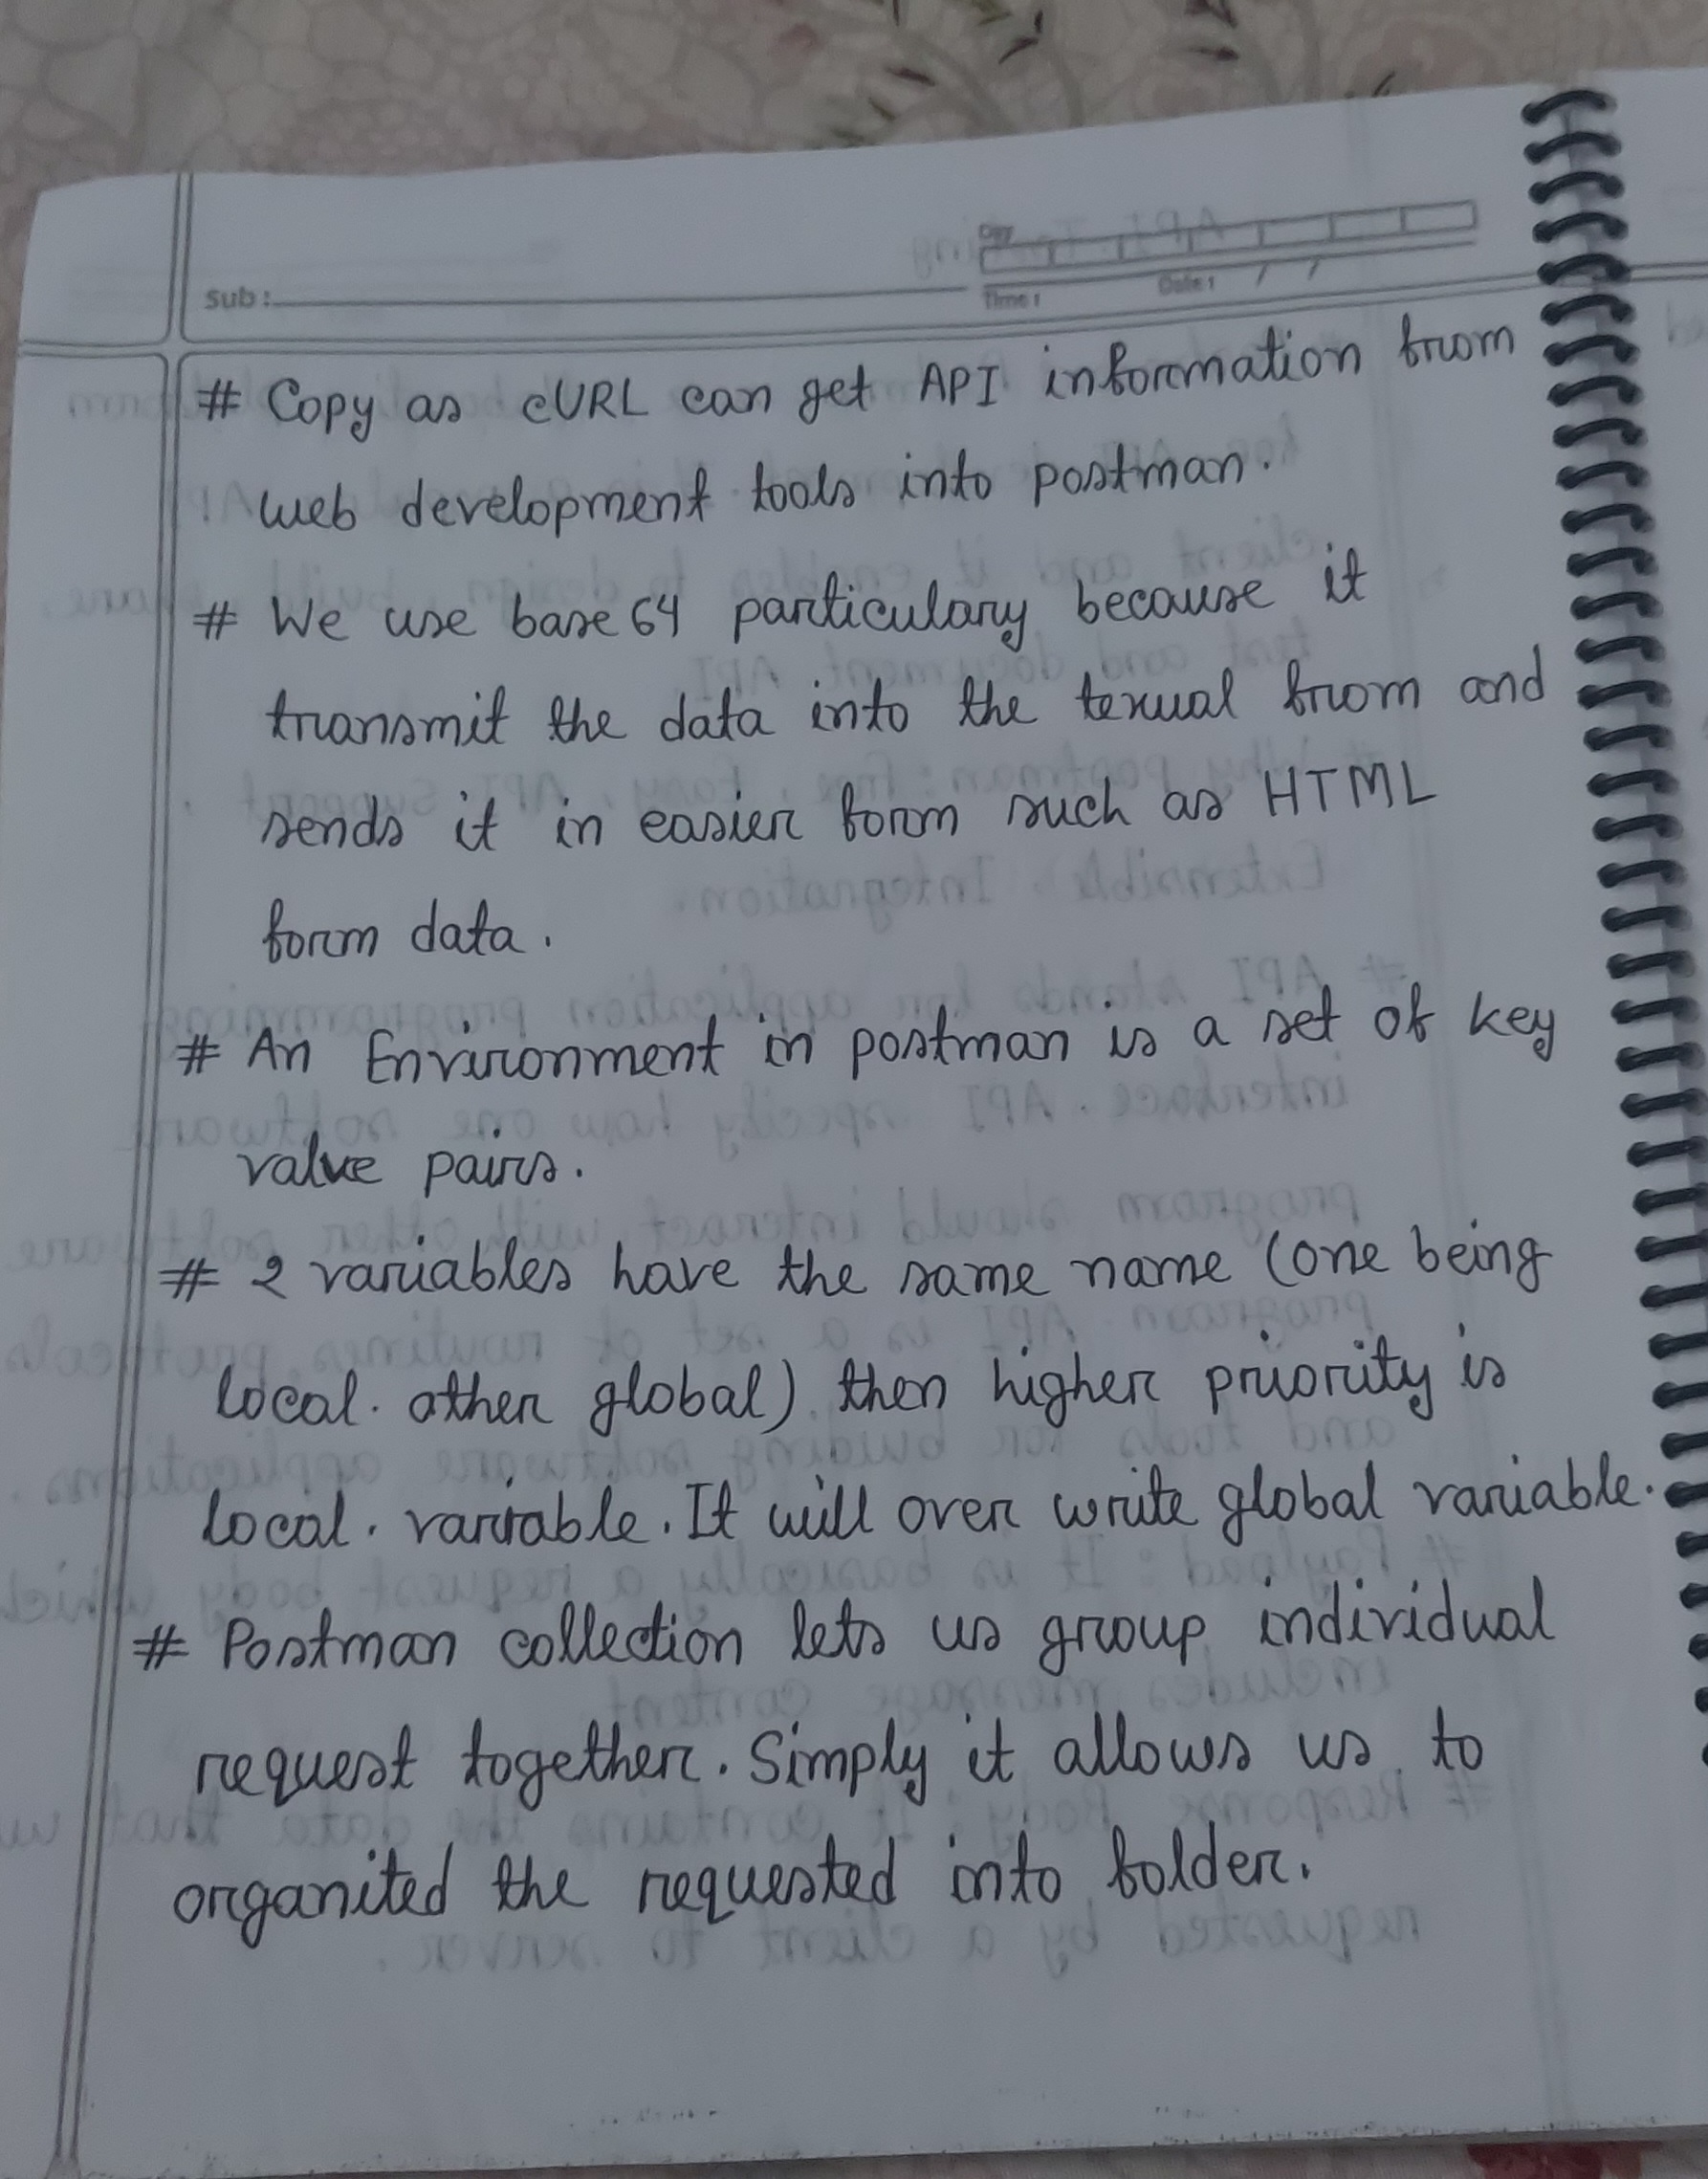 Sub :
Day
Time :
Date : / /
# Copy as cURL can get API information from
web development tools into postman.
# We use base64 particulary because it
transmit the data into the texual from and
sends it in easier form such as HTML
form data.
# An Environment in postman is a set of key
value pairs.
# 2 variables have the same name (one being
local. other global) then higher priority is
local. variable. It will over write global variable.
# Postman collection lets us group individual
request together. Simply it allows us to
organited the requested into folder.